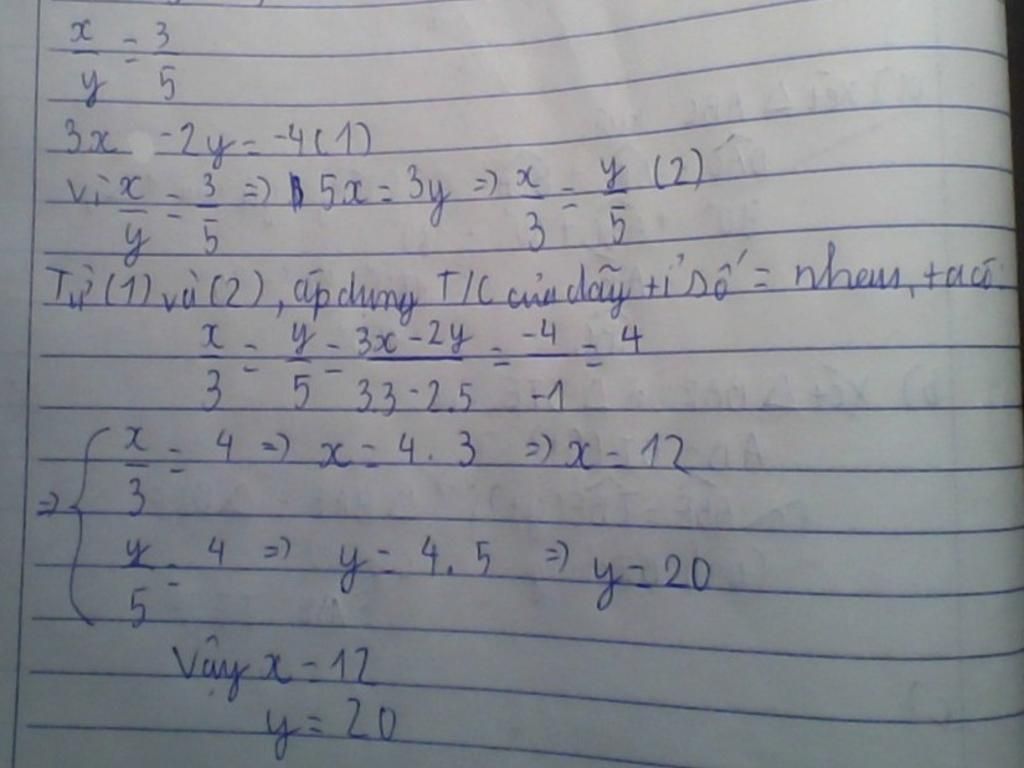 x/y = 3/5
3x -2y = -4 (1)
Vì x/y = 3/5 => 5x = 3y => x/3 = y/5 (2)
Từ (1) và (2), áp dụng T/C của dãy tỉ số = nhau, ta có
x/3 = y/5 = (3x-2y)/(3.3-2.5) = -4/-1 = 4
=> { x/3 = 4 => x = 4.3 => x = 12
y/5 = 4 => y = 4.5 => y = 20
Vậy x = 12
y = 20